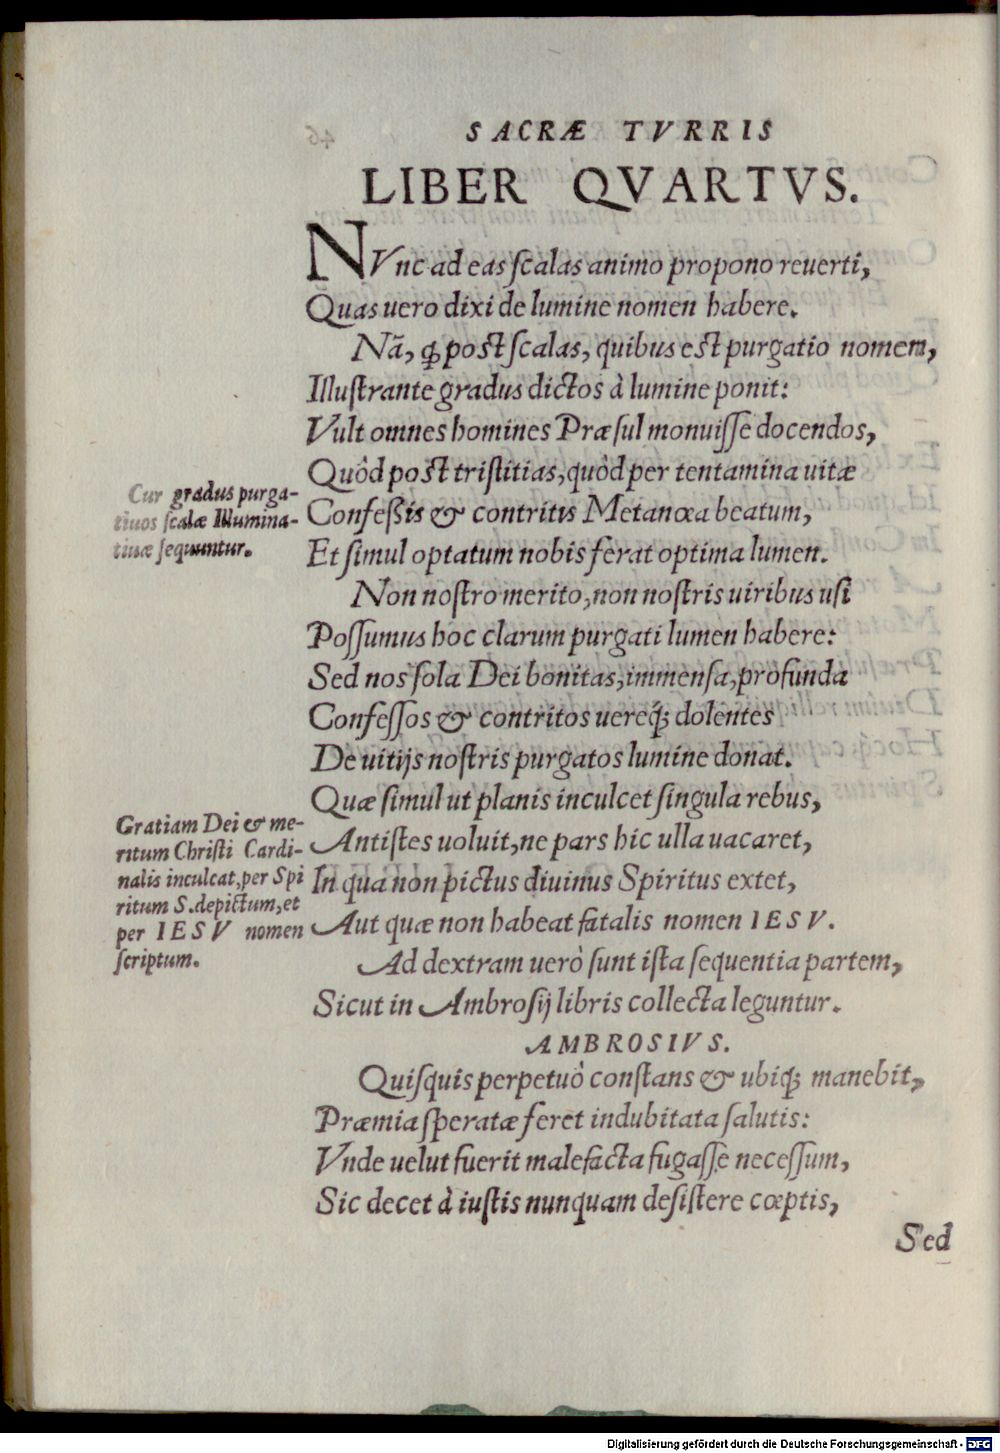 SACRÆ TVRRIS
LIBER QVARTVS.
NVnc ad eas ſcalas animo propono reuerti,
Quas uero dixi de lumine nomen habere.
Nã, ꝙ post ſcalas, quibus est purgatio nomen,
Illuſtrante gradus dictos à lumine ponit:
Vult omnes homines Præſul monuiſſe docendos,
Quòd post triſtitias, quòd per tentamina uitæ
Cur gradus purga-
tiuos ſcalæ Illumina-
tiuæ ſequuntur.
Confeßis & contritis Metanœa beatum,
Et ſimul optatum nobis ferat optima lumen.
Non noſtro merito, non noſtris uiribus uſi
Poſſumus hoc clarum purgati lumen habere:
Sed nos ſola Dei bonitas, immenſa, profunda
Confeſſos & contritos uereq́; dolentes
De uitijs noſtris purgatos lumine donat.
Quæ ſimul ut planis inculcet ſingula rebus,
Gratiam Dei & me-
ritum Chriſti Cardi-
nalis inculcat, per Spi
ritum S. depictum, et
per IESV nomen
ſcriptum.
Antiſtes uoluit, ne pars hic ulla uacaret,
In qua non pictus diuinus Spiritus extet,
Aut quæ non habeat fatalis nomen IESV.
Ad dextram uerò ſunt iſta ſequentia partem,
Sicut in Ambroſij libris collecta leguntur.
AMBROSIVS.
Quiſquis perpetuò conſtans & ubiq; manebit,
Præmia ſperatæ feret indubitata ſalutis:
Vnde uelut fuerit malefacta fugaſſe neceſſum,
Sic decet à iuſtis nunquam deſiſtere cœptis,
Sed
Digitalisierung gefördert durch die Deutsche Forschungsgemeinschaft - DFG